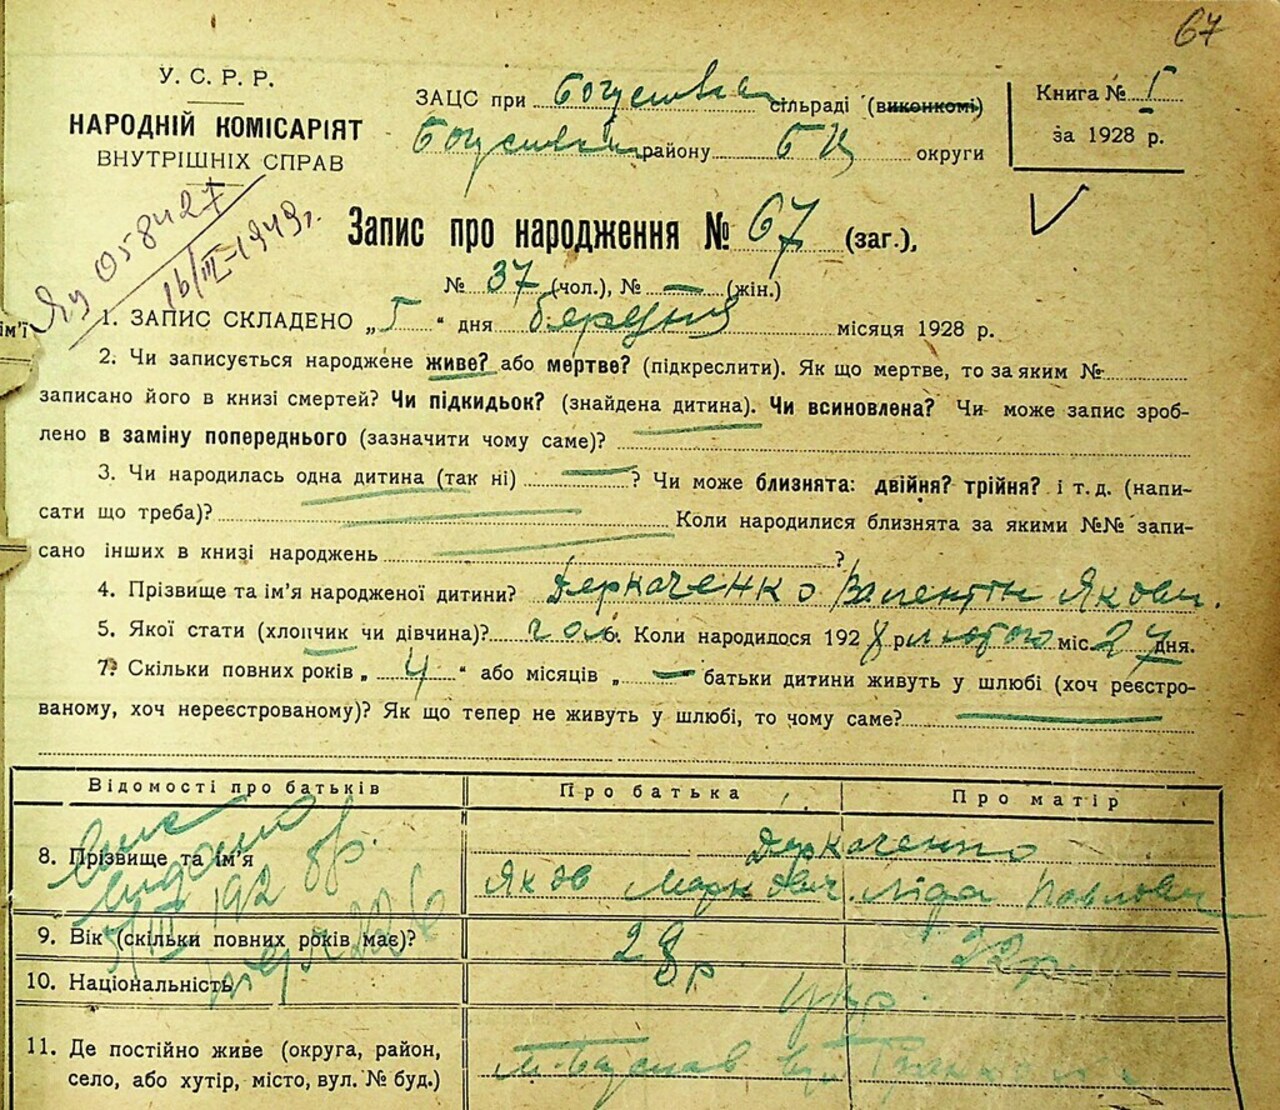 67
У. С. Р. Р.
НАРОДНІЙ КОМІСАРІЯТ
ВНУТРІШНІХ СПРАВ
ЗАЦС при Богуславськ сільраді (виконкомі)
Богуславськ району БЦ округи
Книга № 1
за 1928 р.
058427
16/III-1949г.
Запис про народження № 67 (заг.),
№ 37 (чол.), № — (жін.)
ім'ї
1. ЗАПИС СКЛАДЕНО „5“ дня березня місяця 1928 р.
2. Чи записується народжене живе? або мертве? (підкреслити). Як що мертве, то за яким №
записано його в книзі смертей? Чи підкидьок? (знайдена дитина). Чи всиновлена? Чи може запис зроб-
лено в заміну попереднього (зазначити чому саме)?
3. Чи народилась одна дитина (так ні) — ? Чи може близнята: двійня? трійня? і т. д. (напи-
сати що треба)? Коли народилися близнята за якими №№ запи-
сано інших в книзі народжень ?
4. Прізвище та ім'я народженої дитини? Деркаченко Валентін Якович.
5. Якої стати (хлопчик чи дівчина)? чол. 6. Коли народилося 1928 р. лютого міс. 27 дня.
7. Скільки повних років „4“ або місяців „— батьки дитини живуть у шлюбі (хоч реєстро-
ваному, хоч нереєстрованому)? Як що тепер не живуть у шлюбі, то чому саме?
Відомості про батьків Про батька Про матір
8. Прізвище та ім'я Деркаченко
Яков Маркович. Ліда Павлович
9. Вік (скільки повних років має)? 28 р 22 р.
10. Національність укр.
11. Де постійно живе (округа, район,
село, або хутір, місто, вул. № буд.) м. Богуслав вул.